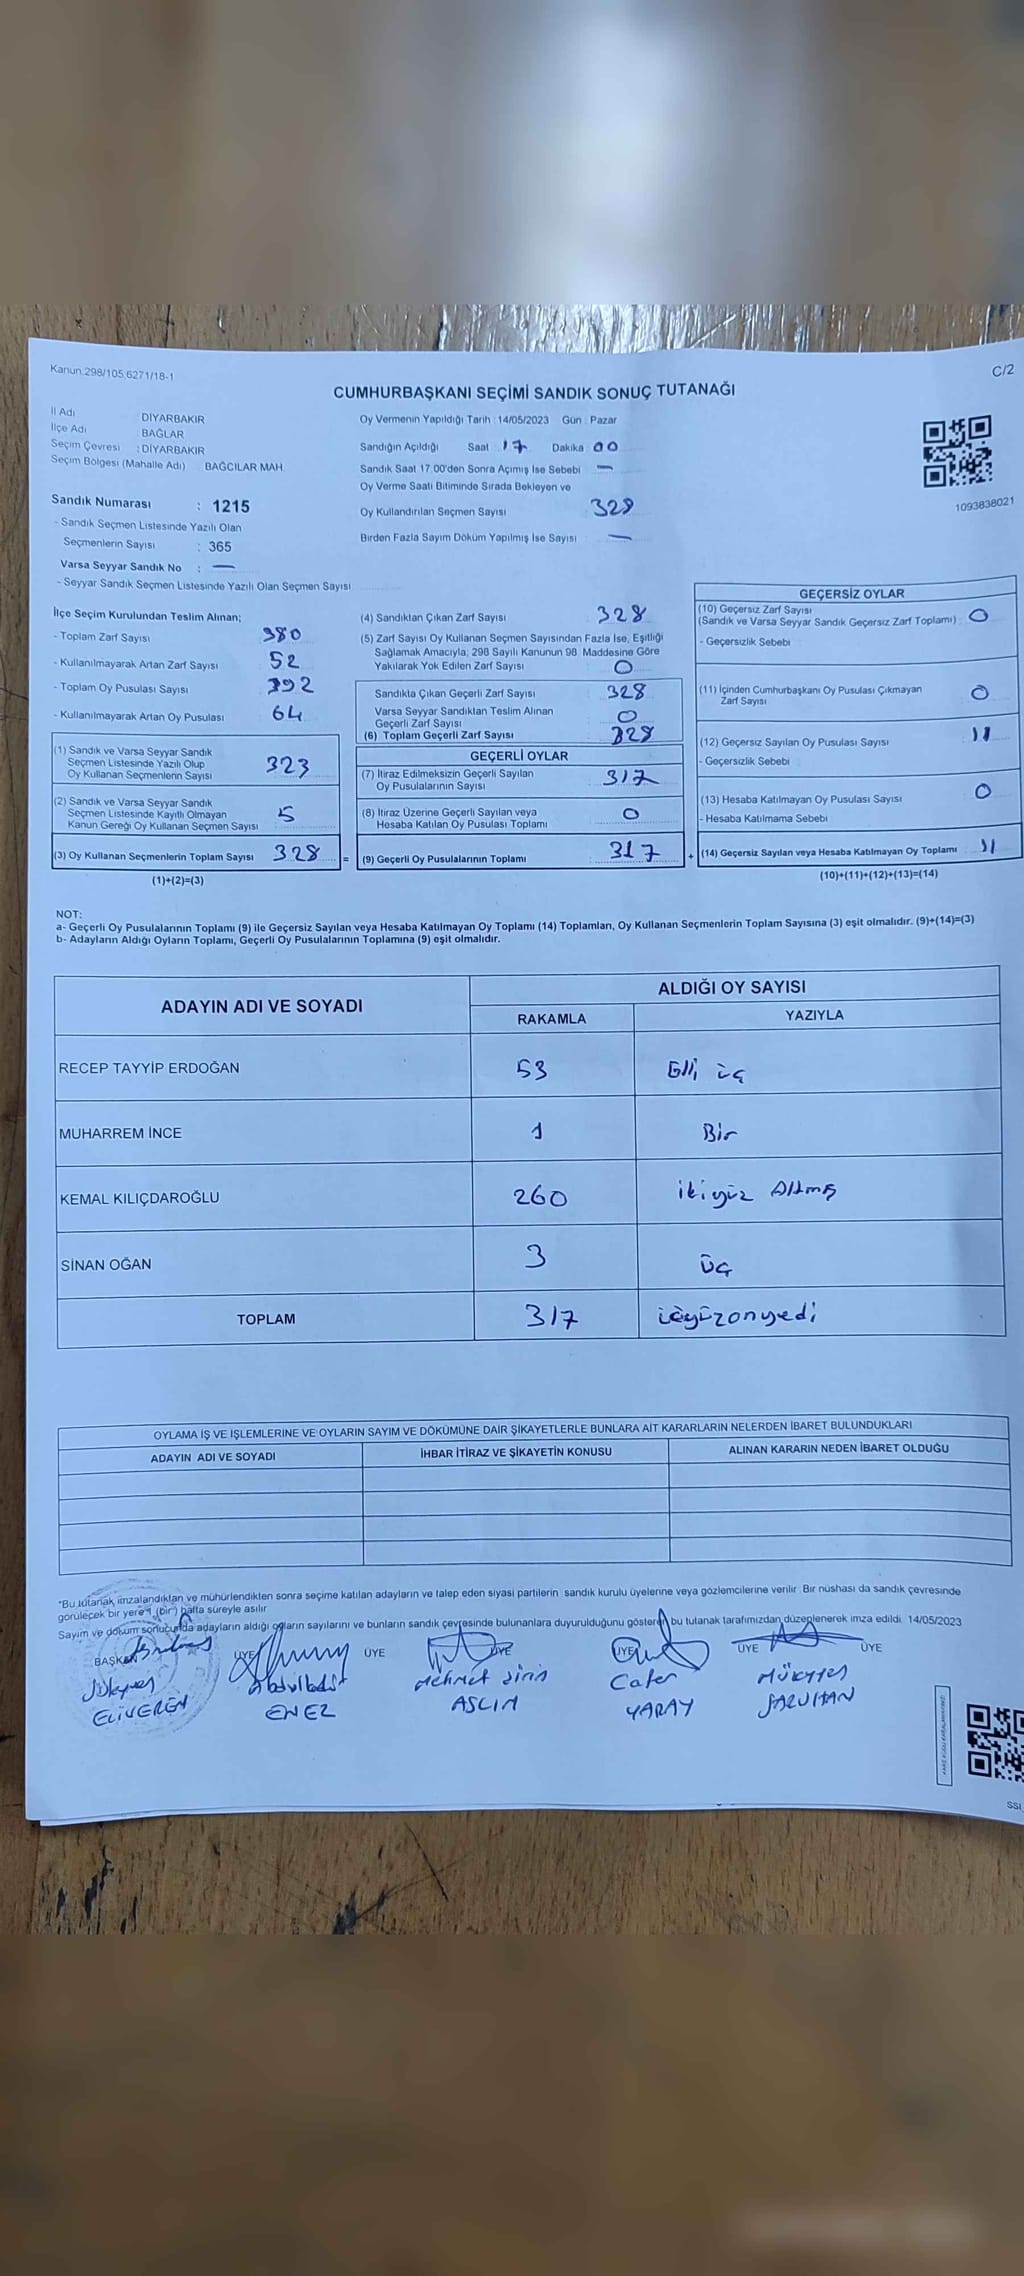 Kanun 298/105,6271/18-1
C/2
CUMHURBAŞKANI SEÇİMİ SANDIK SONUÇ TUTANAĞI
İl Adı DİYARBAKIR
İlçe Adı BAĞLAR
Seçim Çevresi : DİYARBAKIR
Seçim Bölgesi (Mahalle Adı) BAĞCILAR MAH.
Oy Vermenin Yapıldığı Tarih : 14/05/2023 Gün : Pazar
Sandığın Açıldığı Saat : 17 Dakika 00
Sandık Saat 17:00'den Sonra Açımış İse Sebebi —
Oy Verme Saati Bitiminde Sırada Bekleyen ve
Oy Kullandırılan Seçmen Sayısı 328
Birden Fazla Sayım Döküm Yapılmış İse Sayısı : —
1093838021
Sandık Numarası : 1215
- Sandık Seçmen Listesinde Yazılı Olan
Seçmenlerin Sayısı : 365
Varsa Seyyar Sandık No : —
- Seyyar Sandık Seçmen Listesinde Yazılı Olan Seçmen Sayısı
İlçe Seçim Kurulundan Teslim Alınan;
- Toplam Zarf Sayısı 380
- Kullanılmayarak Artan Zarf Sayısı 52
- Toplam Oy Pusulası Sayısı 392
- Kullanılmayarak Artan Oy Pusulası 64
(1) Sandık ve Varsa Seyyar Sandık
Seçmen Listesinde Yazılı Olup
Oy Kullanan Seçmenlerin Sayısı 323
(2) Sandık ve Varsa Seyyar Sandık
Seçmen Listesinde Kayıtlı Olmayan
Kanun Gereği Oy Kullanan Seçmen Sayısı 5
(3) Oy Kullanan Seçmenlerin Toplam Sayısı 328 =
(1)+(2)=(3)
(4) Sandıktan Çıkan Zarf Sayısı 328
(5) Zarf Sayısı Oy Kullanan Seçmen Sayısından Fazla İse, Eşitliği
Sağlamak Amacıyla, 298 Sayılı Kanunun 98. Maddesine Göre
Yakılarak Yok Edilen Zarf Sayısı 0
Sandıkta Çıkan Geçerli Zarf Sayısı 328
Varsa Seyyar Sandıktan Teslim Alınan
Geçerli Zarf Sayısı 0
(6) Toplam Geçerli Zarf Sayısı 328
GEÇERLİ OYLAR
(7) İtiraz Edilmeksizin Geçerli Sayılan
Oy Pusulalarının Sayısı 317
(8) İtiraz Üzerine Geçerli Sayılan veya
Hesaba Katılan Oy Pusulası Toplamı 0
(9) Geçerli Oy Pusulalarının Toplamı : 317 +
GEÇERSİZ OYLAR
(10) Geçersiz Zarf Sayısı
(Sandık ve Varsa Seyyar Sandık Geçersiz Zarf Toplamı) : 0
- Geçersizlik Sebebi
(11) İçinden Cumhurbaşkanı Oy Pusulası Çıkmayan
Zarf Sayısı 0
(12) Geçersiz Sayılan Oy Pusulası Sayısı : 11
- Geçersizlik Sebebi
(13) Hesaba Katılmayan Oy Pusulası Sayısı 0
- Hesaba Katılmama Sebebi
(14) Geçersiz Sayılan veya Hesaba Katılmayan Oy Toplamı : 11
(10)+(11)+(12)+(13)=(14)
NOT:
a- Geçerli Oy Pusulalarının Toplamı (9) ile Geçersiz Sayılan veya Hesaba Katılmayan Oy Toplamı (14) Toplamları, Oy Kullanan Seçmenlerin Toplam Sayısına (3) eşit olmalıdır. (9)+(14)=(3)
b- Adayların Aldığı Oyların Toplamı, Geçerli Oy Pusulalarının Toplamına (9) eşit olmalıdır.
ADAYIN ADI VE SOYADI
ALDIĞI OY SAYISI
RAKAMLA YAZIYLA
RECEP TAYYİP ERDOĞAN 53 Elli üç
MUHARREM İNCE 1 Bir
KEMAL KILIÇDAROĞLU 260 ikiyüz Altmış
SİNAN OĞAN 3 üç
TOPLAM 317 üçyüzonyedi
OYLAMA İŞ VE İŞLEMLERİNE VE OYLARIN SAYIM VE DÖKÜMÜNE DAİR ŞİKAYETLERLE BUNLARA AİT KARARLARIN NELERDEN İBARET BULUNDUKLARI
ADAYIN ADI VE SOYADI İHBAR İTİRAZ VE ŞİKAYETİN KONUSU ALINAN KARARIN NEDEN İBARET OLDUĞU
*Bu tutanak, imzalandıktan ve mühürlendikten sonra seçime katılan adayların ve talep eden siyasi partilerin sandık kurulu üyelerine veya gözlemcilerine verilir. Bir nüshası da sandık çevresinde
görülecek bir yere 1 (bir) hafta süreyle asılır
Sayım ve döküm sonucunda adayların aldığı oyların sayılarını ve bunların sandık çevresinde bulunanlara duyurulduğunu gösteren bu tutanak tarafımızdan düzenlenerek imza edildi. 14/05/2023
BAŞKAN ÜYE ÜYE ÜYE ÜYE ÜYE ÜYE
Mehmet Cafer
ELİVEREN ENEZ ASLIM YARAY SARUHAN
SSI